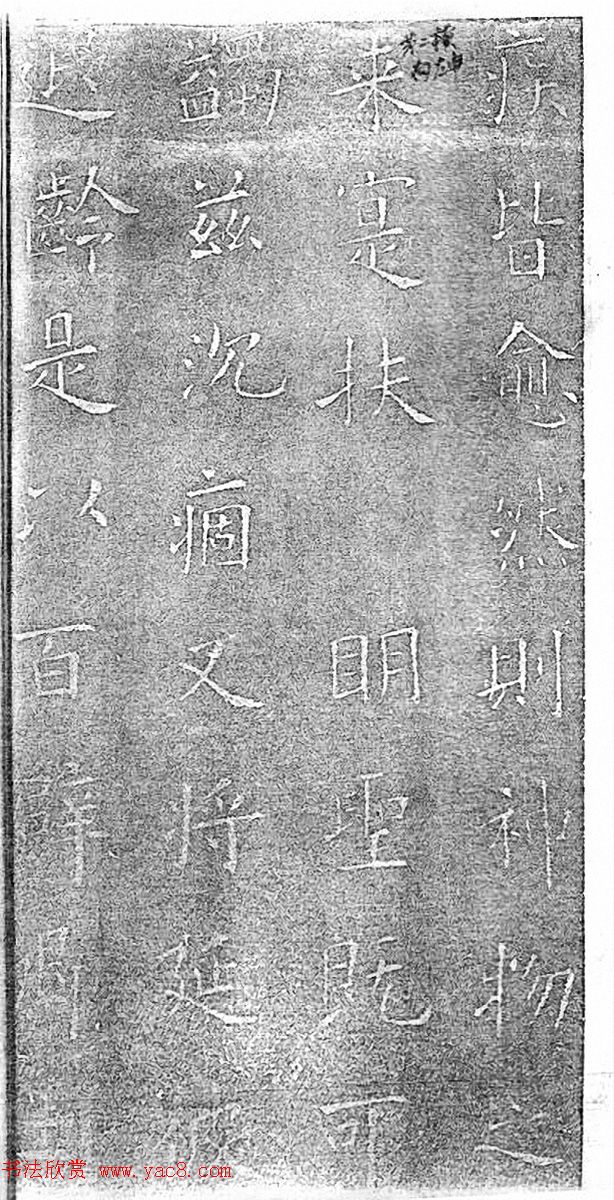 疾皆愈然則神物之
来寔扶 明聖既可
蠲兹沉痼又将延彼
遐齡是以百辟卿
第二横
书法欣赏 www.yac8.com